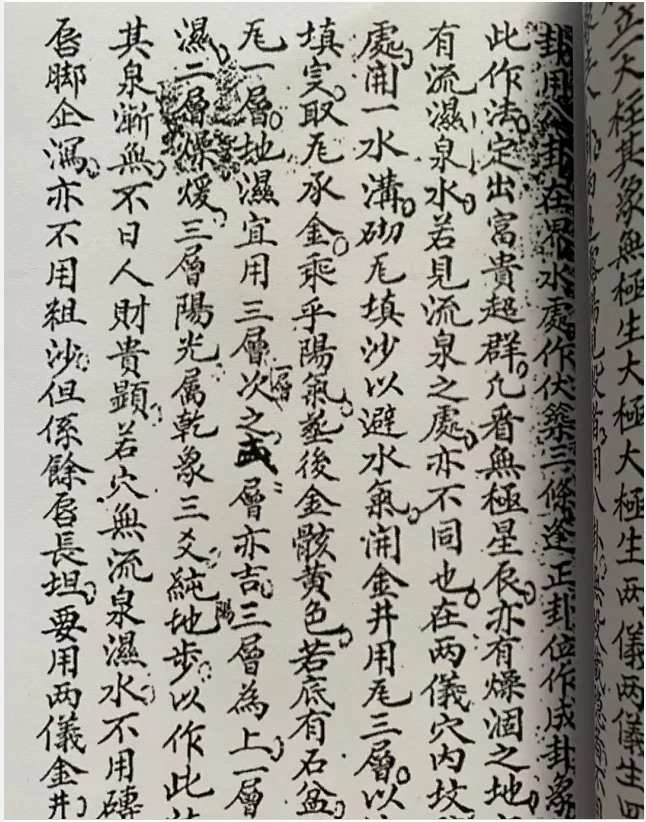 立一大柱其象無極生大極大極生両儀両儀生四
卦用八卦在界水處作伏築三條逢正卦位作成卦象
此作法定出富貴超群凢看無極星辰亦有燥涸之地
有流濕泉水若見流泉之處亦不同也在两儀穴内坟
處開一水溝砌瓦填沙以避水氣開金井用瓦三層以
填实取瓦承金乘乎陽氣塟後金骸黄色若底有石盆
瓦一層地濕宜用三層次之一層弍層亦吉三層為上一層
濕二層燥煖三層陽光属乾象三爻純陽地步以作此
其泉漸無不日人財貴顕若穴無流泉濕水不用磚
唇脚企瀉亦不用粗沙但係餘唇長坦要用两儀金井